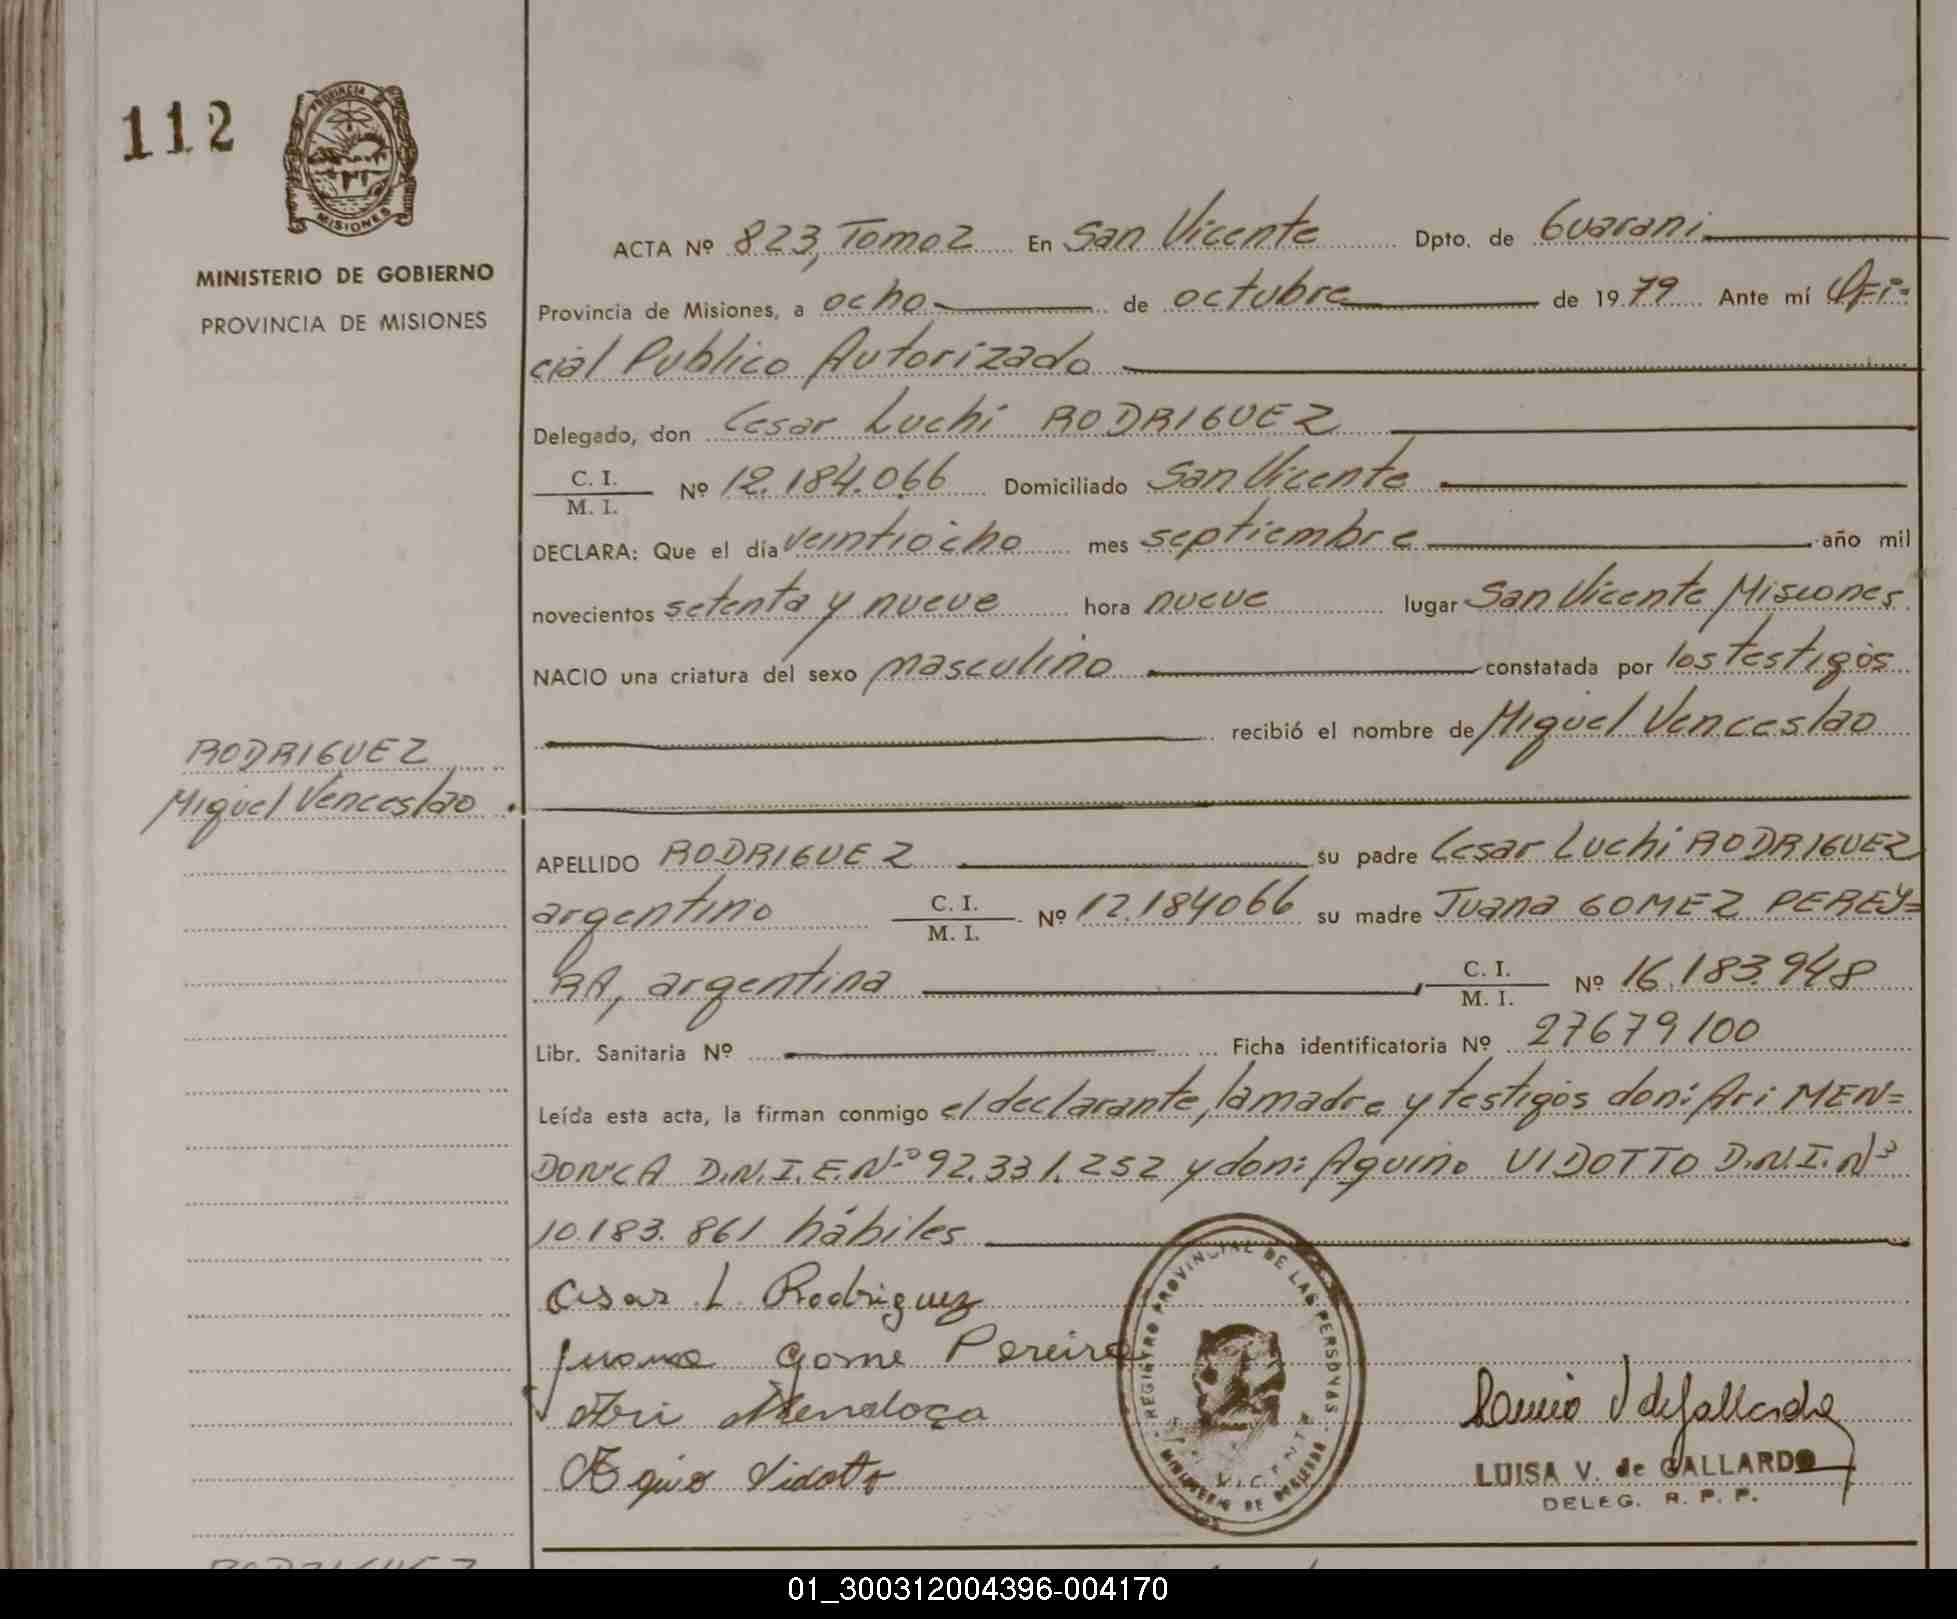 112
PROVINCIA DE
MISIONES
MINISTERIO DE GOBIERNO
PROVINCIA DE MISIONES
ACTA Nº 823, Tomo 2 En San Vicente Dpto. de Guarani
Provincia de Misiones, a ocho de octubre de 1979 Ante mí Ofi=
cial Publico Autorizado
Delegado, don Cesar Luchi RODRIGUEZ
C. I.
M. I.
Nº 12.184.066 Domiciliado San Vicente
DECLARA: Que el día veintiocho mes septiembre año mil
novecientos setenta y nueve hora nueve lugar San Vicente Misiones
NACIO una criatura del sexo masculino constatada por los testigos
recibió el nombre de Miguel Venceslao
RODRIGUEZ
Miguel Venceslao
APELLIDO RODRIGUEZ su padre Cesar Luchi RODRIGUEZ
argentino C. I. M. I. Nº 12.184066 su madre Juana GOMEZ PEREY=
RA, argentina C. I. M. I. Nº 16.183.948
Libr. Sanitaria Nº Ficha identificatoria Nº 27679100
Leída esta acta, la firman conmigo el declarante, la madre y testigos don: Ari MEN=
DONCA D.N.I.E.Nº 92.331.252 y don: Aquino VIDOTTO D.N.I.Nº
10.183.861 hábiles
Cesar L. Rodriguez
Juana Gome Pereira
Ari Mendoça
Aquino Vidoto
REGISTRO PROVINCIAL DE LAS PERSONAS
SAN VICENTE
MINISTERIO DE GOBIERNO
LUISA V. de GALLARDO
DELEG. R. P. P.
RODRIGUEZ
01_300312004396-004170